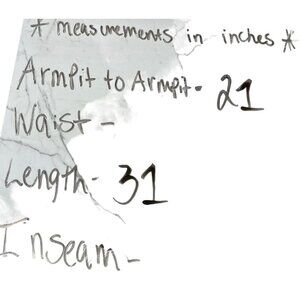 * measurements in inches *
Armpit to Armpit- 21
Waist -
Length- 31
Inseam -